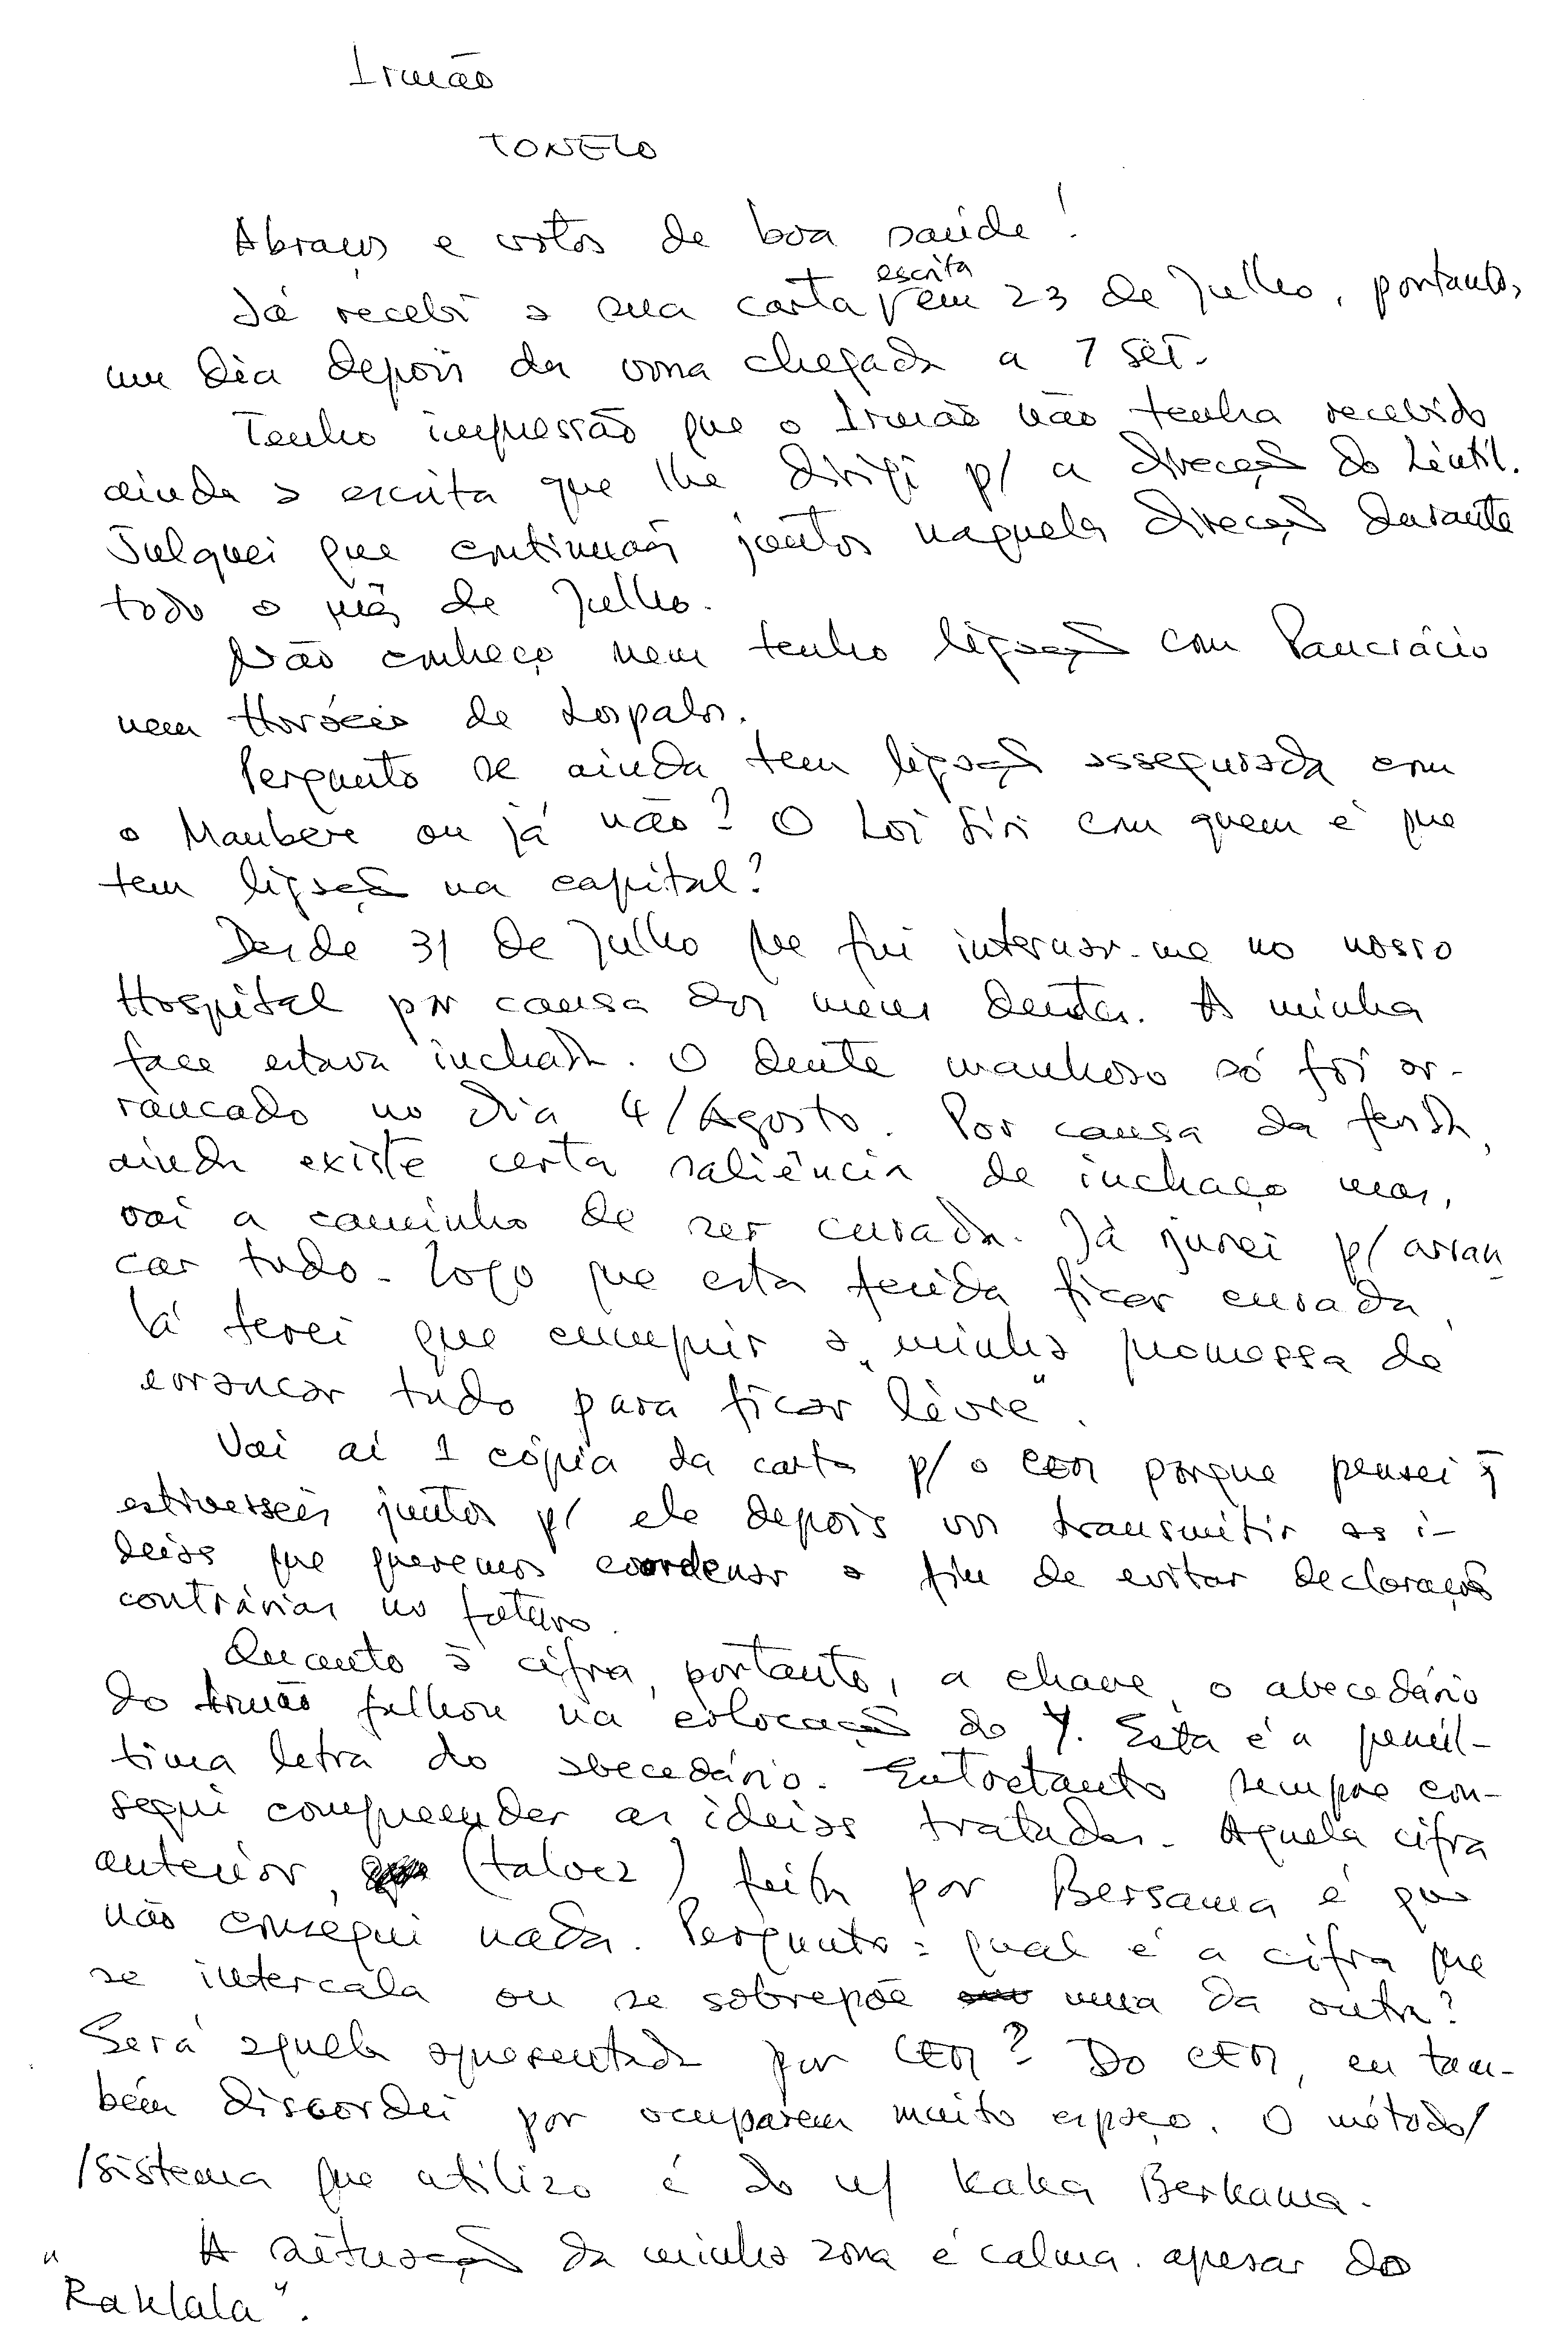 Irmão
TONELO
Abraços e votos de boa saúde!
Já recebi a sua carta escrita em 23 de Julho, portanto,
um dia depois da vossa chegada a 7 SET.
Tenho impressão que o Irmão não tenha recebido
ainda a escrita que lhe dirigi p/ a direcção do Lêntil.
Julguei que continuais juntos naquela direcção durante
todo o mês de Julho.
Não conheço nem tenho ligação com Pancrácio
nem Horácio de Lospalos.
Pergunto se ainda tem ligação assegurada com
o Maubere ou já não? O Loi Siri com quem é que
tem ligação na capital?
Desde 31 de Julho que fui internar-me no nosso
Hospital por causa dos meus dentes. A minha
face estava inchada. O dente manhoso só foi ar-
rancado no dia 4/Agosto. Por causa da ferida,
ainda existe certa saliência de inchaço mas,
vai a caminho de ser curada. Já jurei p/ arran
car tudo. Logo que esta ferida ficar curada,
lá terei que cumprir a "minha promessa de
arrancar tudo para ficar livre".
Vai aí 1 cópia da carta p/ o CER porque pensei q̄
estivesseis juntos p/ ele depois vos transmitir as i-
deias que queremos coordenar a fim de evitar declarações
contrárias no futuro.
Quanto à cifra, portanto, a chave, o abecedário
do Irmão falhou na colocação do Y. Esta é a penúl-
tima letra do abecedário. Entretanto sempre con-
segui compreender as ideias tratadas. Aquela cifra
anterior, (talvez) feita por Bersama é que
não consegui nada. Pergunto: qual é a cifra que
se intercala ou se sobrepõe uma da outra?
Será aquela apresentada por CER? Do CER, eu tam-
bém discordei por ocuparem muito espaço. O método/
/sistema que utilizo é do n/ Kaka Berkama.
A situação da minha zona é calma. apesar do
"Raklala".